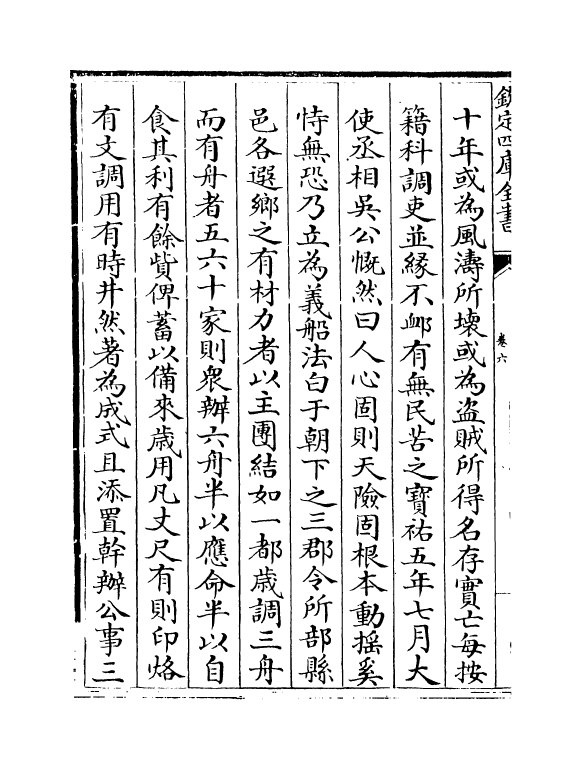 欽定四庫全書
卷六
十年或為風濤所壞或為盜賊所得名存實亡每按
籍科調吏並緣不䘏有無民苦之寶祐五年七月大
使丞相吳公慨然曰人心固則天險固根本動搖奚
恃無恐乃立為義船法白于朝下之三郡令所部縣
邑各選鄉之有材力者以主團結如一都歲調三舟
而有舟者五六十家則衆辦六舟半以應命半以自
食其利有餘貲俾蓄以備來歲用凡丈尺有則印烙
有文調用有時井然著為成式且添置幹辦公事三